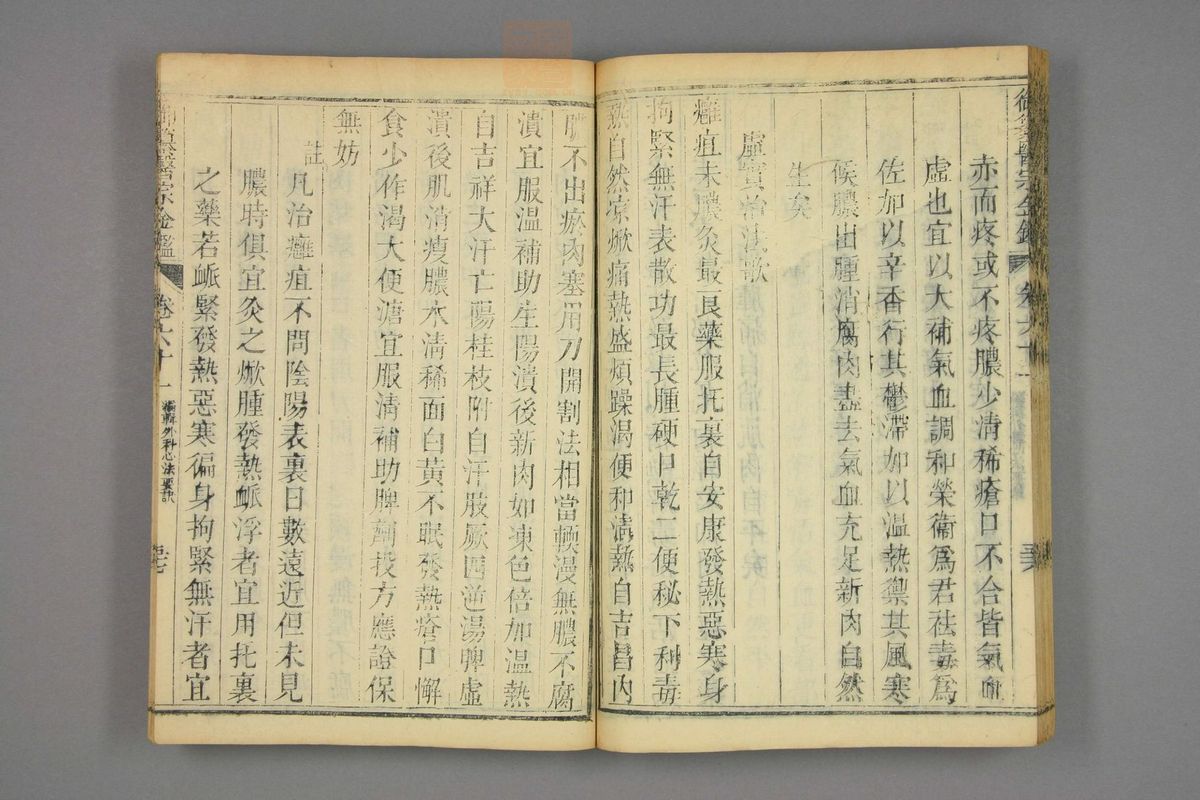 御纂醫宗金鑑
赤而疼或不疼膿少清稀瘡口不合皆氣血
虛也宜以大補氣血調和榮衞爲君祛毒爲
佐加以辛香行其鬱滯加以温熱禦其風寒
候膿出腫消腐肉盡去氣血充足新肉自然
生矣
虛實治法歌
癰疽未膿灸最良藥服托裏自安康發熱惡寒身
拘緊無汗表散功最長腫硬口乾二便秘下利毒
熱自然凉焮痛熱盛煩躁渴便和清熱自吉昌內
膿不出瘀肉塞用刀開割法相當輭漫無膿不腐
潰宜服温補助生陽潰後新肉如凍色倍加温熱
自吉祥大汗亡陽桂枝附自汗肢厥四逆湯脾虛
潰後肌消瘦膿水清稀面白黃不眠發熱瘡口懈
食少作渴大便溏宜服清補助脾劑投方應證保
無妨
註
凡治癰疽不問陰陽表裏日數遠近但未見
膿時俱宜灸之焮腫發熱脈浮者宜用托裏
之藥若脈緊發熱惡寒徧身拘緊無汗者宜
御纂醫宗金鑑
卷六十一
編輯外科心法要訣